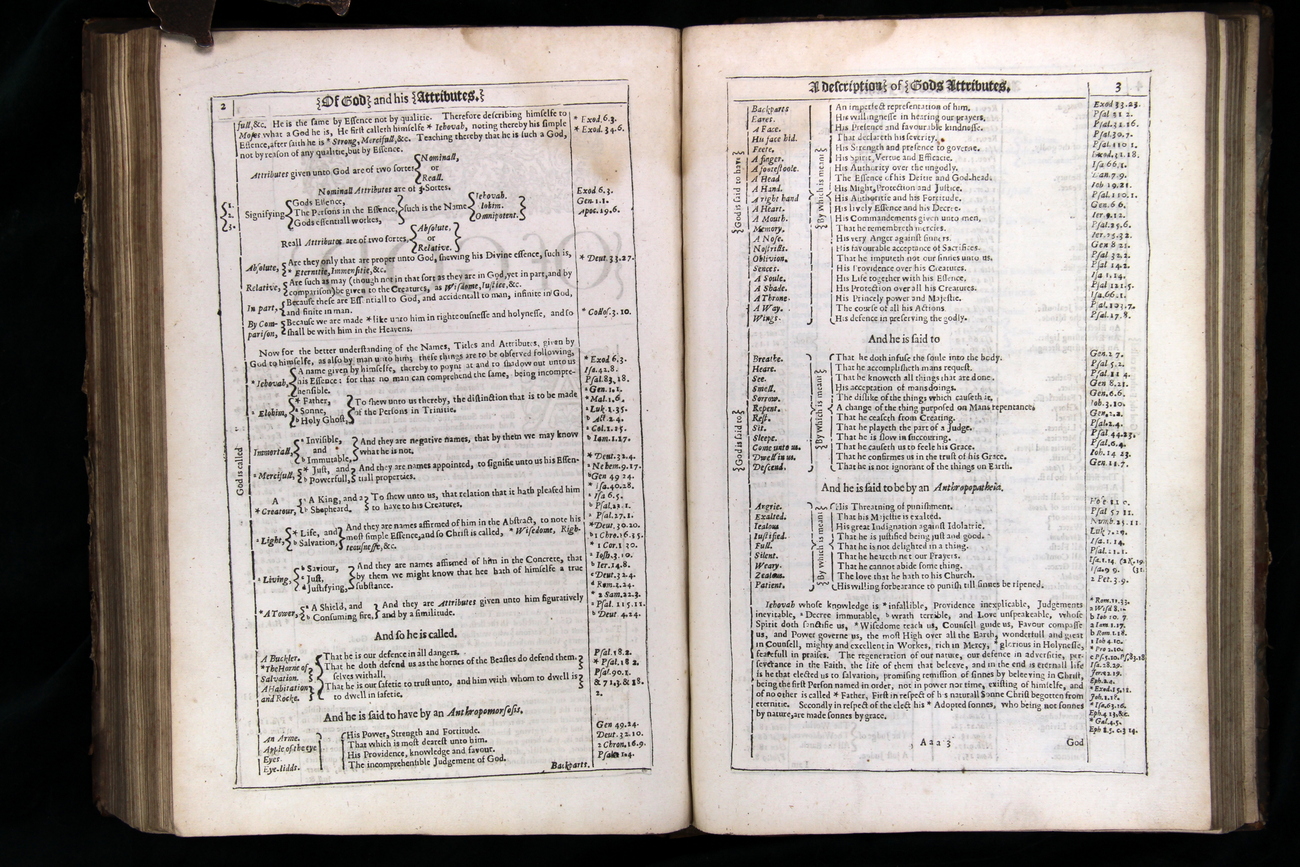 2
{Of God} and his {Attributes.}
full, &c. He is the same by Essence not by qualitie. Therefore describing himselfe to
Moses what a God he is, He first calleth himselfe * Iehovah, noting thereby his simple
Essence, after saith he is * Strong, Mercifull, &c. Teaching thereby that he is such a God,
not by reason of any qualitie, but by Essence.
* Exod. 6.3.
* Exod. 34.6.
Attributes given unto God are of two sortes {Nominall,
or
Reall.
Nominall Attributes are of 3. Sortes.
1.
2.
3.
Signifying
Gods Essence,
The Persons in the Essence,
Gods essentiall workes,
such is the Name
Iehovah.
Iohim.
Omnipotent.
Exod 6.3.
Gen. 1.1.
Apoc. 19.6.
Reall Attributes are of two sortes, {Absolute.
or
Relative.
Absolute, {Are they only that are proper unto God, shewing his Divine essence, such is,
* Eternitie, Immensitie, &c.
* Deut. 33.27.
Relative, {Are such as may (though not in that sort as they are in God, yet in part, and by
comparison) be given to the Creatures, as Wisedome, Iustice, &c.
In part, {Because these are Essentiall to God, and accidentall to man, infinite in God,
and finite in man.
By Com-
parison, {Because we are made * like unto him in righteousnesse and holynesse, and so
shall be with him in the Heavens.
* Colos. 3.10.
Now for the better understanding of the Names, Titles and Attributes, given by
God to himselfe, as also by man unto him; these things are to be observed following,
God is called
* Iehovah, {A name given by himselfe, thereby to poynt at and to shadow out unto us
his Essence: for that no man can comprehend the same, being incompre-
hensible.
* Elohim, {* Father,
* Sonne,
b Holy Ghost,} To shew unto us thereby, the distinction that is to be made
of the Persons in Trinitie.
Immortall, {* Invisible,
and
b Immutable,} And they are negative names, that by them we may know
what he is not.
* Mercifull, {* Just, and
b Powerfull,} And they are names appointed, to signifie unto us his Essen-
tiall properties.
A
* Creatour, {* A King, and a
b Shepheard.} To shew unto us, that relation that it hath pleased him
to have to his Creatures.
* Light, {* Life, and
b Salvation,} And they are names affirmed of him in the Abstract, to note his
most simple Essence, and so Christ is called, * Wisedome, Righ-
teousnesse, &c.
* Living, {b Saviour,
* Just,
* Justifying,} And they are names affirmed of him in the Concrete, that
by them we might know that hee hath of himselfe a true
substance.
* A Tower, {* A Shield, and
b Consuming fire,} And they are Attributes given unto him figuratively
and by a similitude.
* Exod 6.3.
Isa. 42.8.
Psal. 83.18.
* Gen. 1.1.
* Mal. 1.6.
* Luk. 1.35.
b Act. 2.4.
* Col. 1.15.
b Iam. 1.17.
* Deut. 32.4.
* Nehem. 9.17.
b Gen 49 24.
* Isa. 40.28.
* Isa 6.5.
b Psal. 23.1.
* Psal. 27.1.
* Deut. 30.20.
b 1 Chro. 16.35.
* 1 Cor. 1 30.
* Iosh. 3.10.
b Ier. 14.8.
* Deut. 32.4.
* Rom. 3.24.
* 2 Sam. 22.3.
* Psal. 115.11.
b Deut 4.24.
And so he is called.
A Buckler. {That he is our defence in all dangers.
* The Horne of
Salvation. {That he doth defend us as the hornes of the Beastes do defend them-
selves withall.
A Habitation
and Rocke. {That he is our safetie to trust unto, and him with whom to dwell is
to dwell in safetie.
Psal. 18.2.
* Psal. 18 2.
Psal. 90.1.
& 71.3. & 18.
2.
And he is said to have by an Anthropomorfosis.
An Arme. His Power, Strength and Fortitude.
Apple of the eye That which is most dearest unto him.
Eyes. His Providence, knowledge and favour.
Eye-lidds. The incomprehensible Judgement of God.
Gen 49.24.
Deut. 32.10.
2 Chron. 16.9.
Backparts.
A description} of {Gods Attributes.
3
God is said to have
By which is meant
Backparts An imperfect representation of him. Exod 33.23.
Eares. His willingnesse in hearing our prayers. Psal 31 2.
A Face. His Presence and favourable kindnesse. Psal. 31.16.
His face hid. That declareth his severity. Psal. 30.7.
Feete. His Strength and presence to governe. Psal. 110 1.
A finger. His Spirit, Vertue and Efficacie.
A footestoole. His Authority over the ungodly. Isa 66.1.
A Head The Essence of his Deitie and God-head. Dan. 7.9.
A Hand. His Might, Protection and Justice. Iob 19.21.
A right hand His Authoritie and his Fortitude. Psal. 110.1.
A Heart. His lively Essence and his Decree. Gen. 6 6.
A Mouth. His Commandements given unto men. Ier. 9.12.
Memory. That he remembreth mercies. Psal. 25.6.
A Nose. His very Anger against sinners.
Nostrills. His favourable acceptance of Sacrifices. Gen 8 21.
Oblivion. That he imputeth not our sinnes unto us. Psal 32.2.
Sences. His Providence over his Creatures. Psal 14.2.
A Soule. His Life together with his Essence. Isa 1.14.
A Shade. His Protection over all his Creatures. Psal 121.5.
A Throne. His Princely power and Majestie. Isa. 66.1.
A Way. The course of all his Actions Psal. 103.7.
Wings. His defence in preserving the godly. Psal. 17.8.
And he is said to
God is said to
By which is meant
Breathe. That he doth infuse the soule into the body. Gen. 2 7.
Heare. That he accomplisheth mans request. Psal 5.2.
See. That he knoweth all things that are done. Psal. 11 4.
Smell. His acceptation of mans doings. Gen 8.21.
Sorrow. The dislike of the things which causeth it. Gen. 6.6.
Repent. A change of the thing purposed on Mans repentance. Iob. 3.10.
Rest. That he ceaseth from Creating. Gen. 2.2.
Sit. That he playeth the part of a Judge. Psal. 2.4.
Sleepe. That he is slow in succouring. Psal 44.23.
Come unto us. That he causeth us to feele his Grace. Psal. 6.4.
Dwell in us. That he confirmes us in the trust of his Grace. Ioh. 14 23.
Descend. That he is not ignorant of the things on Earth. Gen. 11.7.
And he is said to be by an Anthropopatheia.
By which is meant
Angrie. His Threatning of punishment.
Exalted. That his Majestie is exalted. Psal 57 11.
Iealous His great Indignation against Idolatrie. Numb. 25.11.
Iustified. That he is justified being just and good. Luk 7.29.
Full. That he is not delighted in a thing. Isa. 1.14.
Silent. That he heareth not our Prayers.
Weary. That he cannot abide some thing.
Zealous. The love that he hath to his Church.
Patient. His willing forbearance to punish, till sinnes be ripened. 2 Pet. 3.9.
Iehovah whose knowledge is * infallible, Providence inexplicable, Judgements
inevitable, * Decree immutable, b wrath terrible, and Love unspeakeable, whose
Spirit doth sanctifie us, * Wisedome teach us, Counsell guide us, Favour compasse
us, and Power governe us, the most High over all the Earth, wonderfull and great
in Counsell, mighty and excellent in Workes, rich in Mercy, * glorious in Holynesse,
fearefull in praises. The regeneration of our nature, our defence in adversitie, per-
severance in the Faith, the life of them that beleeve, and in the end is eternall life
is he that elected us to salvation, promising remission of sinnes by beleeving in Christ,
being the first Person named in order, not in power nor time, existing of himselfe, and
of no other is called * Father, First in respect of his naturall Sonne Christ begotten from
eternitie. Secondly in respect of the elect his * Adopted sonnes, who being not sonnes
by nature, are made sonnes by grace.
* Rom. 11.33.
b Iob 10. 7.
* Iam 1.17.
b Rom 1.18.
* Pro 2.10.
Isa. 28.29.
* Exod. 15.11.
* Isa. 63.16.
* Gal. 4.5.
A a a 3
God